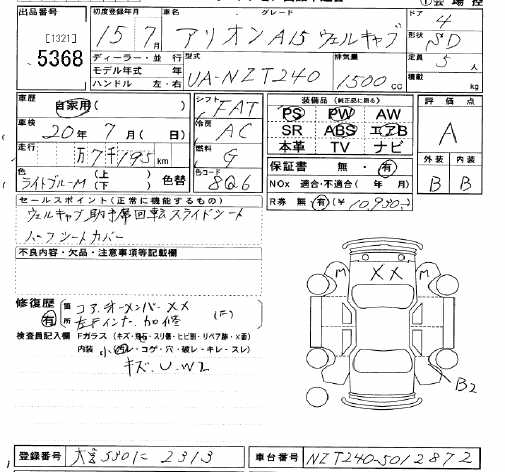 出品番号 初度登録年月 車名 グレード ドア 4
[1321] 15年7月 アリオン A15 ウェルキャブ 形状 SD
5368 ディーラー・並行 型式 排気量 定員 5人
モデル年式 年 UA-NZT240 1500cc 積載 kg
ハンドル 左・右
車歴 自家用( ) シフト FAT 装備品 (純正品に限る) 評価点
車検 20年7月( 日) 冷房 AC PS PW AW A
SR ABS エアB
走行 万7千195km 燃料 G 本革 TV ナビ 外装 内装
保証書 無・有 B B
色 ライトブルーM (上) (下) 色替 色コード 8Q6 NOx 適合・不適合( 年 月)
R券 無・有(¥10930.-)
セールスポイント(正常に機能するもの)
ウェルキャブ 助手席回転スライドシート
ハーフシートカバー
不良内容・欠品・注意事項等記載欄
M XX M
修復歴 有 箇所 コアオーメンバーXX
左Fインナー加修 (F)
検査員記入欄 Fガラス(キズ・飛石・スリ傷・ヒビ割・リペア跡・X面)
内装 小(汚レ・コゲ・穴・破レ・キレ・スレ)
キズ.U.W2
B2
登録番号 2313 車台番号 NZT240-5012872